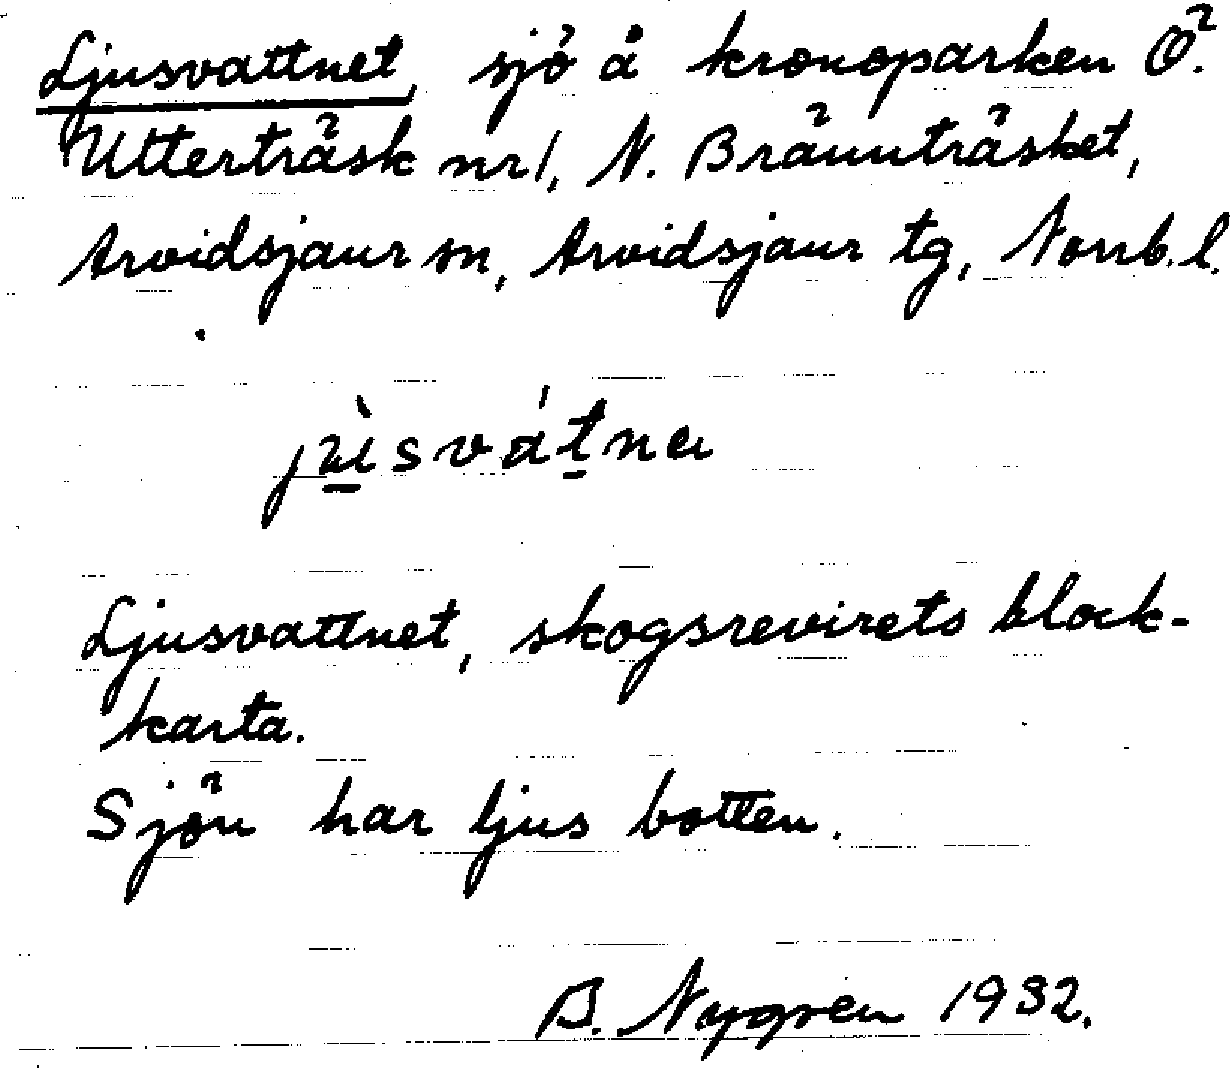 Ljusvattnet, sjö å kronoparken Ö.
Utterträsk nr 1, N. Brännträsket,
Arvidsjaur sn, Arvidsjaur tg, Norrb. l.
Ljusvattnet, skogsrevirets block-
karta.
Sjön har ljus botten.
B. Nygren 1932.